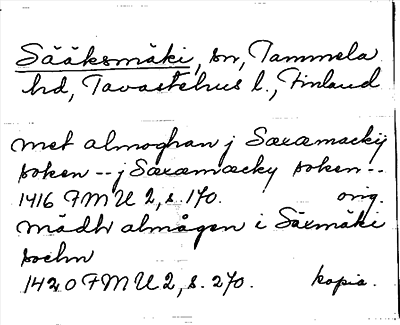 Sääksmäki, sn, Tammela
hd, Tavastehus l., Finland
met almoghan j Saxamæckij
soken -- j Saxamæcky soken --
1416 FMU 2, s. 170. orig.
mädh almågen i Säxmäki
sochn
1420 FMU 2, s. 270. kopia.